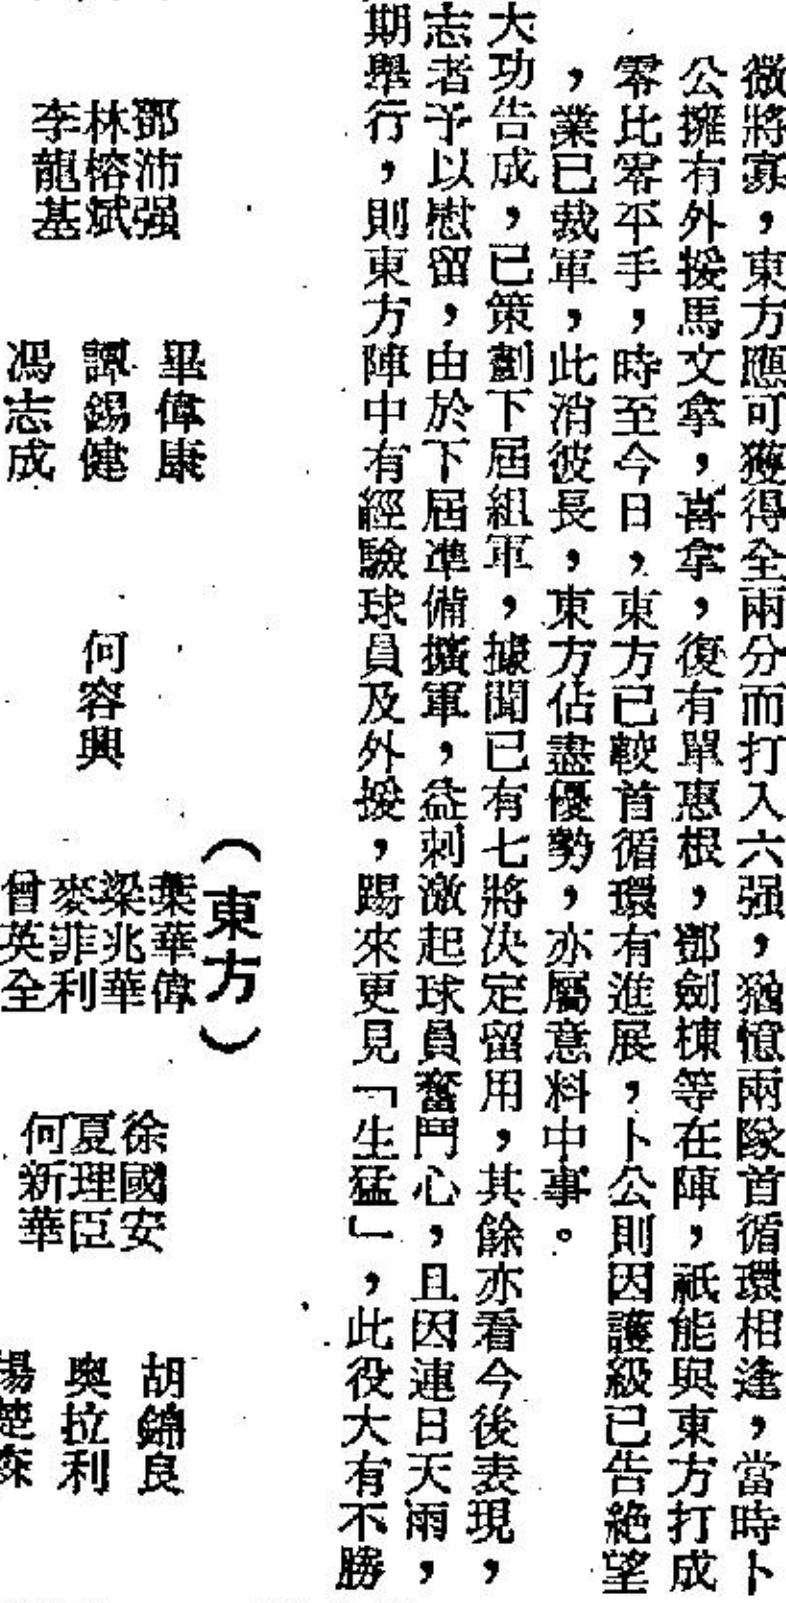 微將寡，東方應可獲得全兩分而打入六强，猶憶兩隊首循環相逢，當時卜
公擁有外援馬文拿，喜拿，復有單惠根，鄧劍棟等在陣，祇能與東方打成
零比零平手，時至今日，東方已較首循環有進展，卜公則因護級已告絶望
，業已裁軍，此消彼長，東方佔盡優勢，亦屬意料中事。
大功告成，已策劃下屆組軍，據聞已有七將决定留用，其餘亦看今後表現，
志者予以慰留，由於下屆準備擴軍，益刺激起球員奮鬥心，且因連日天雨，
期舉行，則東方陣中有經驗球員及外援，踢來更見「生猛」，此役大有不勝
（東方）
鄧沛强
林榕斌
李龍基
畢偉康
譚錫健
馮志成
何容興
葉華偉
梁兆華
麥菲利
曾英全
徐國安
夏理臣
何新華
胡錦良
奧拉利
楊楚森